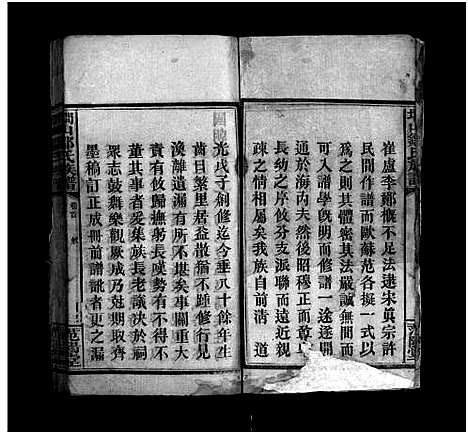 崔盧李鄭慨不足法逮宋真宗許
民間作譜而歐蘇范各擬一式以
為之則其體密其法嚴誠無間而
可入譜學旣明而修譜一途遂開
通於海內夫然後昭穆正而尊
長幼之序攸分支派聯而遠近親
疎之情相屬矣我族自前清 道
光戊子創修迄今垂八十餘年生
茵日繁里居益散循不踵修行見
渙離遺漏有所不堪矣事關重大
責有攸歸撫躬長嘆勢有不得不
董其事者爰集族長老議決於祠
眾志鼓舞樂觀厥成乃尅期取齊
墨稿訂正成冊前譜訛者更之漏
鄒氏族譜
卷首
范陽堂